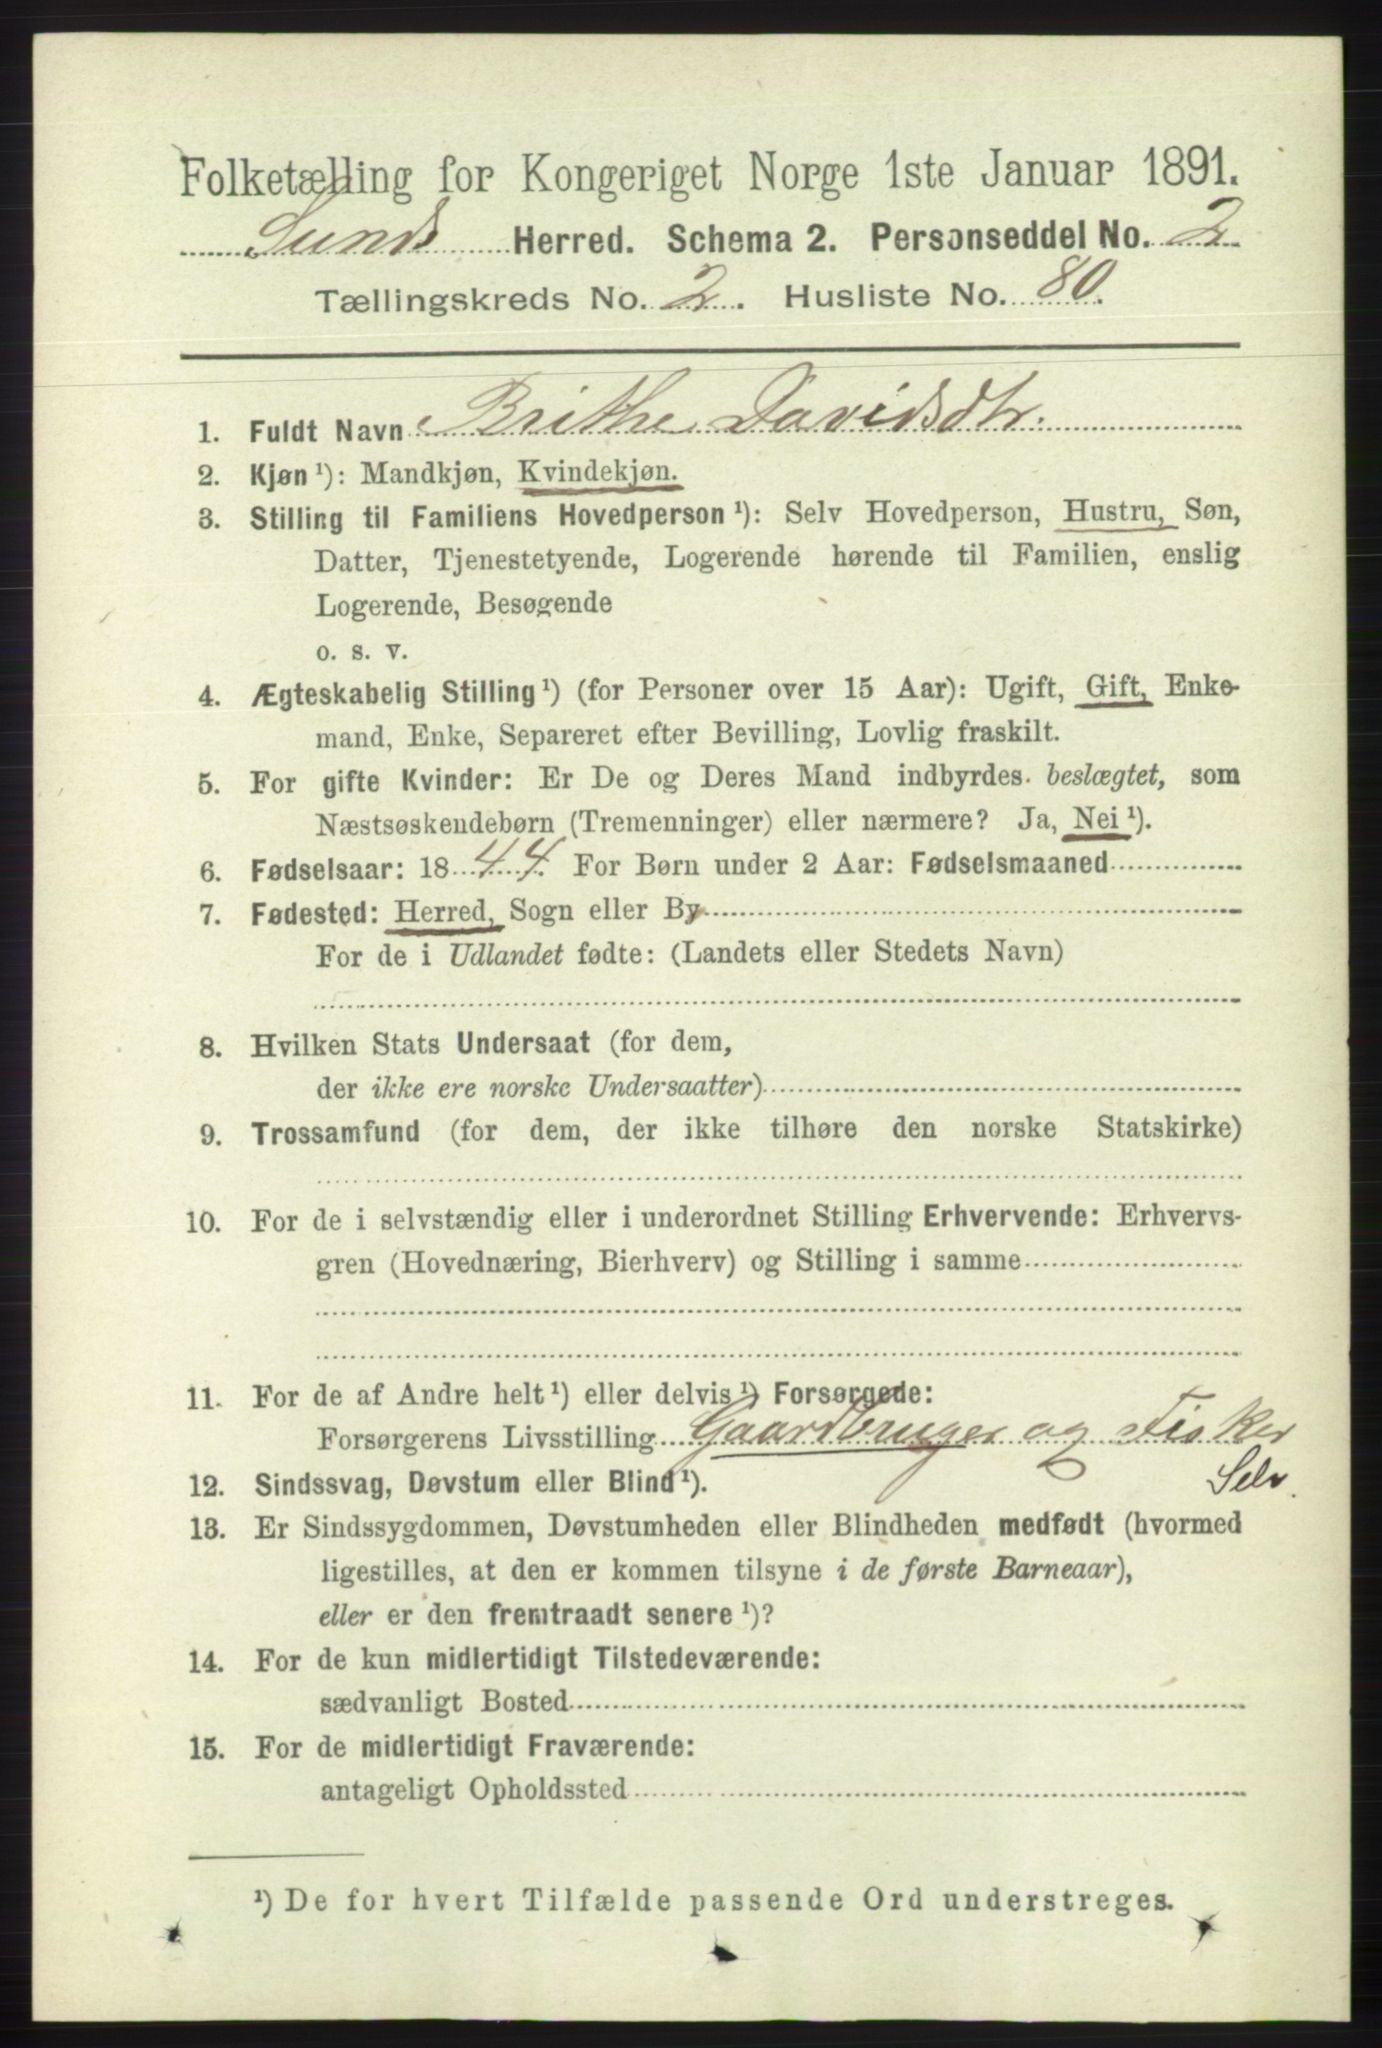 Folketælling for Kongeriget Norge 1ste Januar 1891.
Sunds Herred. Schema 2. Personseddel No. 2
Tællingskreds No. 2. Husliste No. 80.
1. Fuldt Navn Brithe Davidsdtr.
2. Kjøn ¹): Mandkjøn, Kvindekjøn.
3. Stilling til Familiens Hovedperson ¹): Selv Hovedperson, Hustru, Søn,
Datter, Tjenestetyende, Logerende hørende til Familien, enslig
Logerende, Besøgende
o. s. v.
4. Ægteskabelig Stilling ¹) (for Personer over 15 Aar): Ugift, Gift, Enke-
mand, Enke, Separeret efter Bevilling, Lovlig fraskilt.
5. For gifte Kvinder: Er De og Deres Mand indbyrdes beslægtet, som
Næstsøskendebørn (Tremenninger) eller nærmere? Ja, Nei ¹).
6. Fødselsaar: 1844. For Børn under 2 Aar: Fødselsmaaned
7. Fødested: Herred, Sogn eller By
For de i Udlandet fødte: (Landets eller Stedets Navn)
8. Hvilken Stats Undersaat (for dem,
der ikke ere norske Undersaatter)
9. Trossamfund (for dem, der ikke tilhøre den norske Statskirke)
10. For de i selvstændig eller i underordnet Stilling Erhvervende: Erhvervs-
gren (Hovednæring, Bierhverv) og Stilling i samme
11. For de af Andre helt ¹) eller delvis ¹) Forsørgede:
Forsørgerens Livsstilling Gaardbruger og Fisker
12. Sindssvag, Døvstum eller Blind ¹). Selv.
13. Er Sindssygdommen, Døvstumheden eller Blindheden medfødt (hvormed
ligestilles, at den er kommen tilsyne i de første Barneaar),
eller er den fremtraadt senere ¹)?
14. For de kun midlertidigt Tilstedeværende:
sædvanligt Bosted
15. For de midlertidigt Fraværende:
antageligt Opholdssted
¹) De for hvert Tilfælde passende Ord understreges.